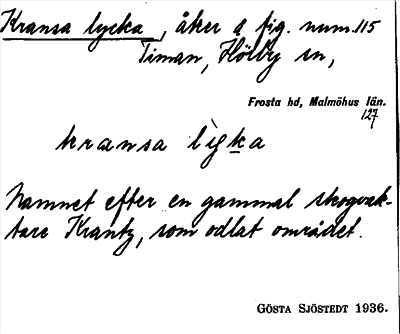 Kransa lycka, åker å fig. num. 115
Timan, Hörby sn,
Frosta hd, Malmöhus län.
127
kransa lygka
Namnet efter en gammal skogvak-
tare Krantz, som odlat området.
GÖSTA SJÖSTEDT 1936.